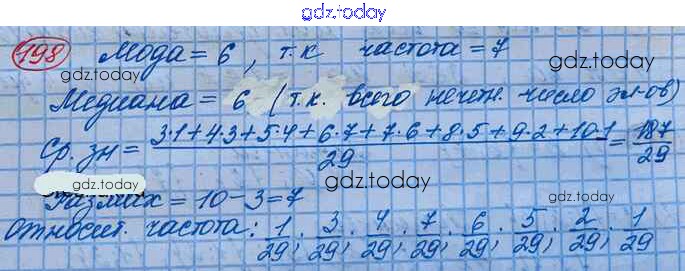 gdz.today
198 Мода = 6, т.к частота = 7
gdz.today
gdz.today
Медиана = 6 (т.к. всего нечетн. число эл-ов)
gdz.today
Ср. зн = (3·1+4·3+5·4+6·7+7·6+8·5+9·2+10·1)/29 = 187/29
gdz.today
gdz.today
gdz.today
Размах = 10-3=7
относит. частота: 1/29; 3/29; 4/29; 7/29; 6/29; 5/29; 2/29; 1/29